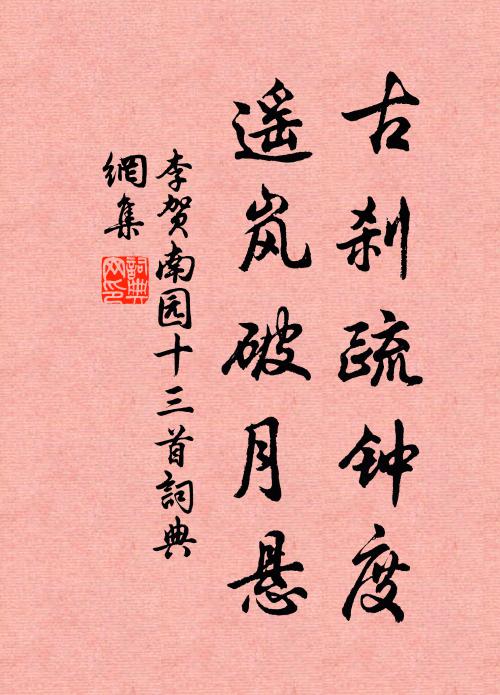 古刹疏钟度
遥岚破月悬
李贺南园十三首詞典
網集
詞典
网印